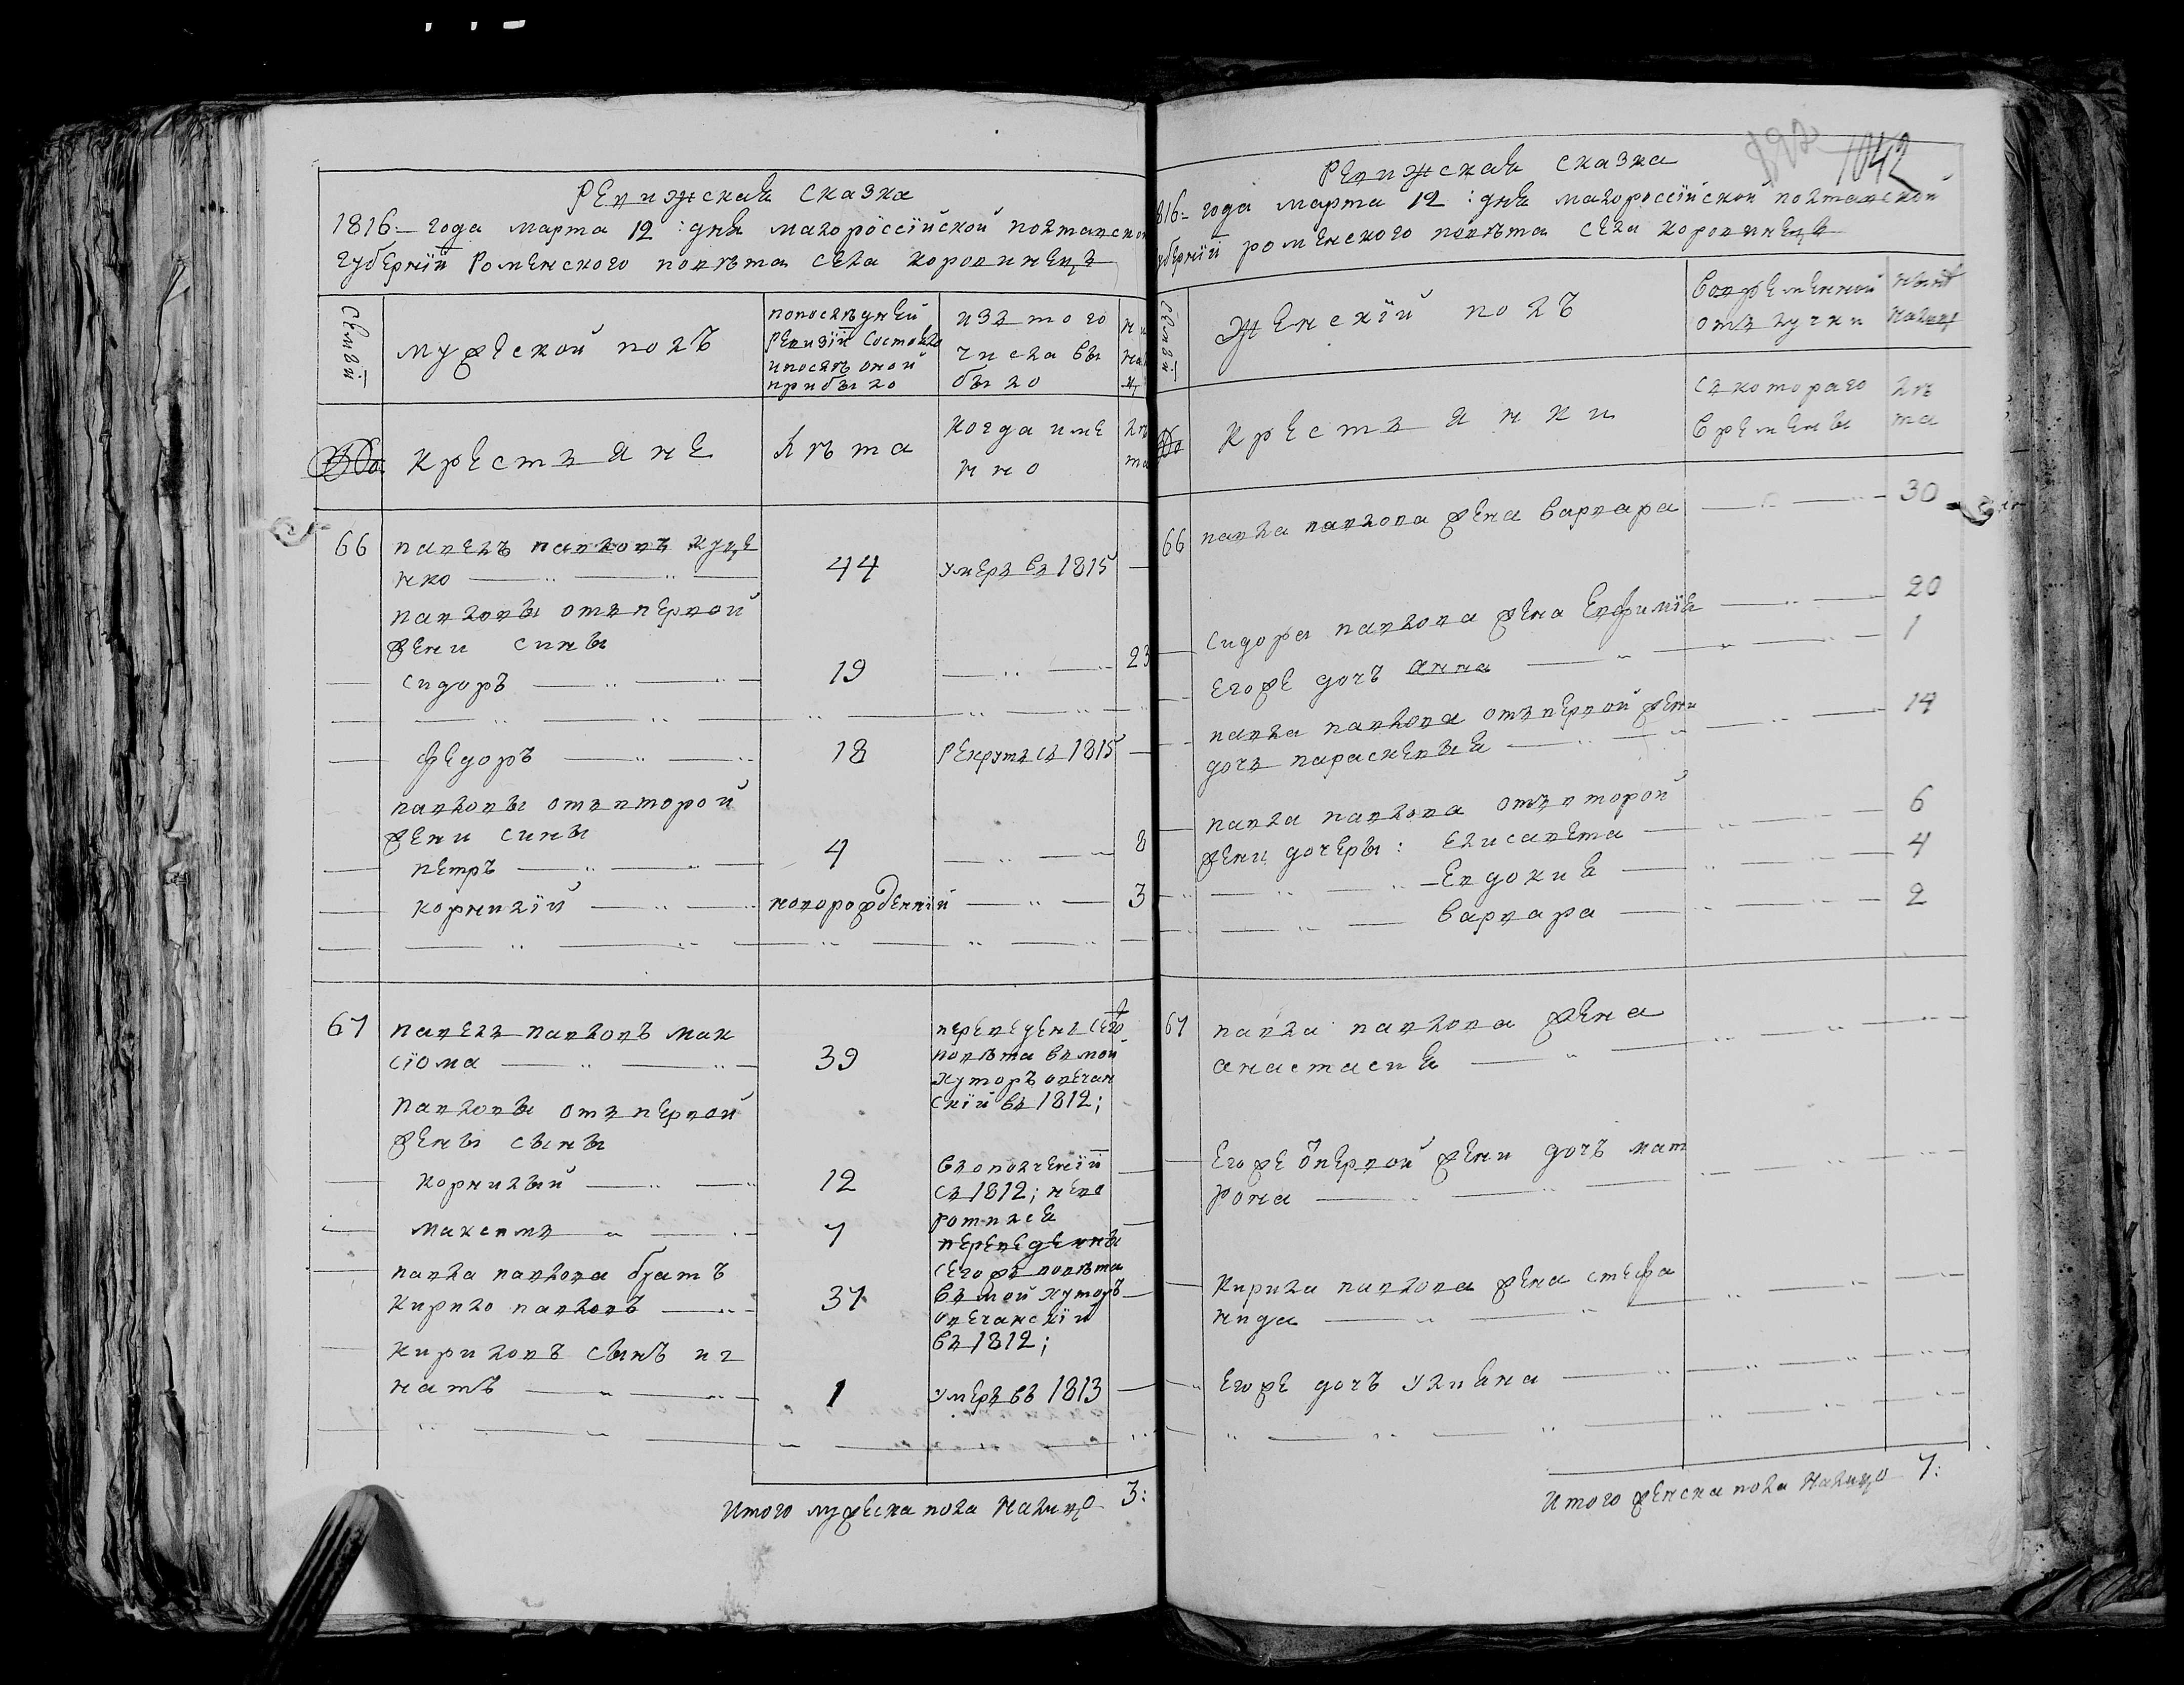 Ревижская сказка
1816 – года марта 12 : дня малороссійской полтавской
губерніи Роменского повѣта села коровинецъ
Семьи
мужеской полъ
попослѣдней
ревизіи состояло
ипослѣ оной
прибыло
изъ того
числа вы
было
№
крестъяне
лѣта
когда име
нно
лѣ
та
66
павелъ павловъ куце
нко
44
умеръ въ 1815
павловы отъпервой
жени сины
сидоръ
19
23
федоръ
18
рекрутъ съ 1815
павловы отъвторой
жени сины
петръ
4
8
корнилій
новорожденній
3
67
павелъ павловъ мак
сіома
39
переведенъ сего
повѣта въ мой
хуторъ овечан
скій въ 1812;
павловы отъпервой
жены сыны
корнилый
12
въ ополченіи
съ 1812; нево
ротился
максимъ
7
переведенны
сегожъ повѣта
въ мой хуторъ
овечанскій
въ 1812;
павла павлова братъ
кирило павловъ
37
кириловъ сынъ иг
натъ
1
умеръ въ 1813
Итого мужеска пола налицо 3:
1042
Ревижская сказка
816 – года марта 12 : дня малороссійской полтавской
уберніи роменского повѣта села коровинецъ
Женскій полъ
вовременной
отълучки
нынѣ
налиц
№
крестъянки
съ котораго
времены
лѣ
та
66
павла павлова жена варвара
30
сидора павлова жена евфимія
20
егоже дочъ анна
1
павла павлова отъпервой жени
дочъ параскевыя
14
павла павлова отъвторой
жени дочеры : елисавета
6
евдокия
4
варвара
2
67
павла павлова жена
анастасия
егоже ѿпервой жени дочъ мат
рона
кирила павлова жена стефа
нида
егоже дочъ улияна
Итого женска пола налицо 7: